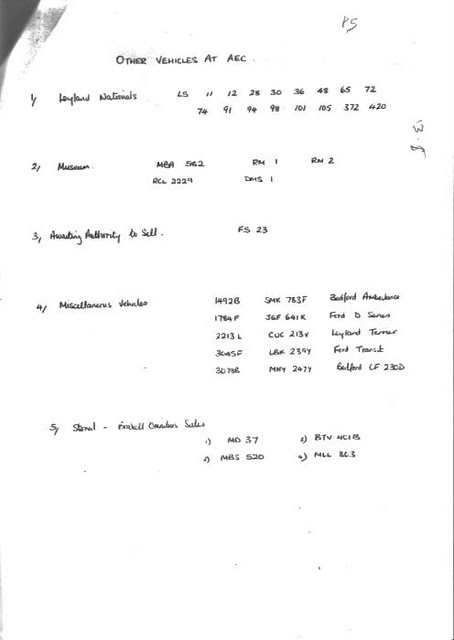 P5
OTHER VEHICLES AT AEC.
1/ Leyland Nationals LS 11 12 28 30 36 48 65 72
74 91 94 98 101 105 372 420
2/ Museum. MBA 582 RM 1 RM 2
RCL 2229 DMS 1
3/ Awaiting Authority to Sell. FS 23
4/ Miscellaneous Vehicles 1492B SMK 783F Bedford Ambulance
1784F JGF 641K Ford D Series
2213L CUC 213V Leyland Terrier
3045F LBK 239Y Ford Transit
3078B MHY 247Y Bedford CF 230D
5/ Stored - Omnibus Sales
1) MD 37 3) BTV 401B
2) MBS 520 4) MLL 803